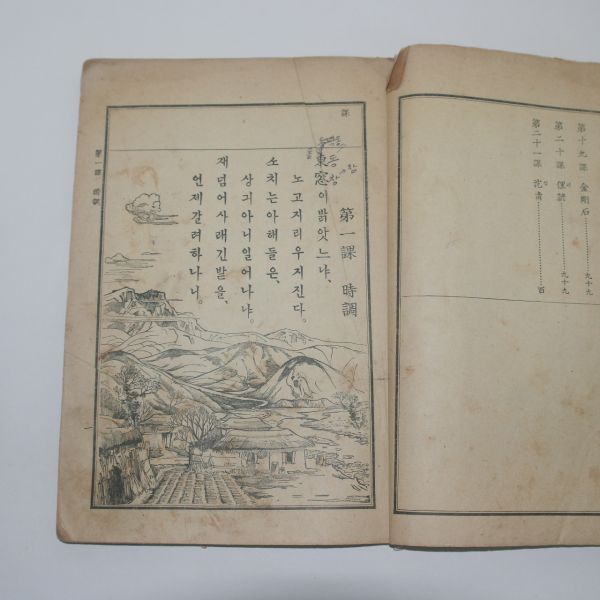 第十九課 金剛石………九十九
第二十課 俚諺………九十九
第二十一課 ………百
課
第一課 時調
東窓이밝앗느냐,
노고지리우지진다。
소치는아해들은,
상긔아니일어나냐。
재넘어사래긴밭을,
언제갈려하나니。
第一課 時調